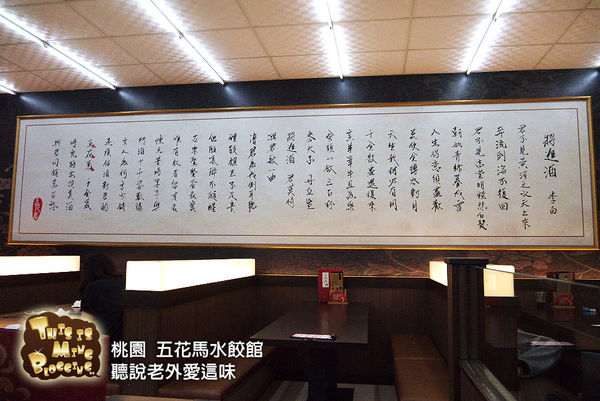 將進酒
李白
君不見黃河之水天上來
奔流到海不復回
君不見高堂明鏡悲白髮
朝如青絲暮成雪
人生得意須盡歡
莫使金樽空對月
天生我材必有用
千金散盡還復來
烹羊宰牛且為樂
會須一飲三百杯
岑夫子 丹丘生
將進酒 君莫停
與君歌一曲
請君為我側耳聽
鐘鼓饌玉不足貴
但願長醉不願醒
古來聖賢皆寂寞
惟有飲者留其名
陳王昔時宴平樂
斗酒十千恣歡謔
主人為何言少錢
徑須沽取對君酌
五花馬 千金裘
呼兒將出換美酒
與爾同銷萬古愁
THIS IS
MING
BLOGGING..
桃園 五花馬水餃館
聽說老外愛這味